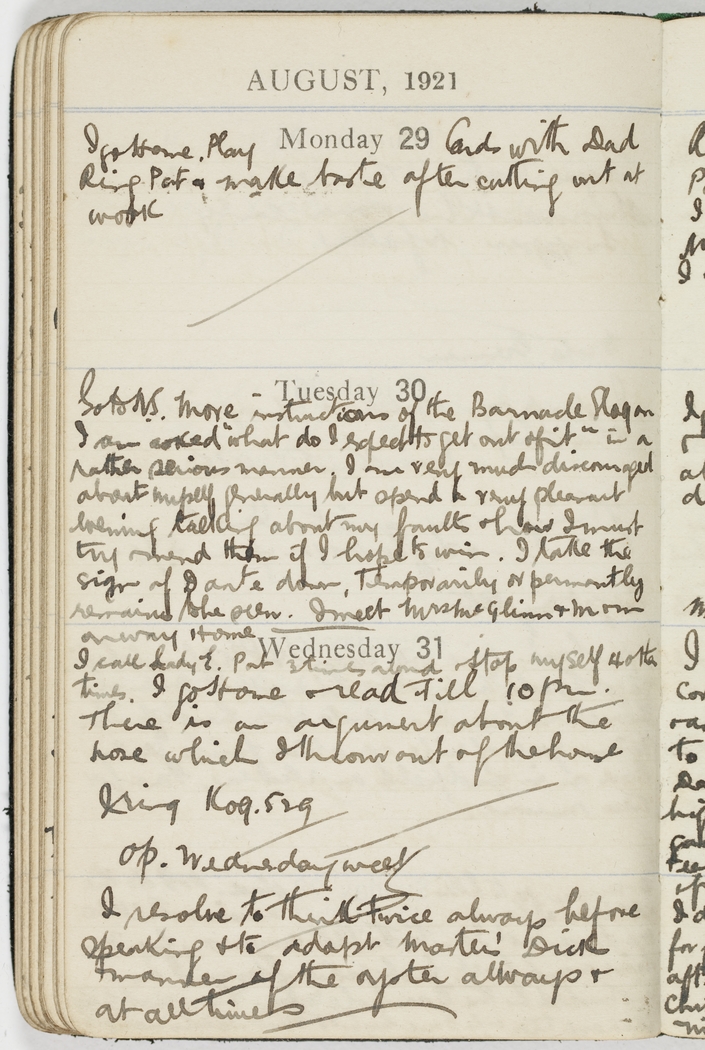 AUGUST, 1921
Monday 29
I go Home. Play Cards with Dad
Ring Pat & make taste after cutting out at
work
Tuesday 30
Go to NS. More instructions of the Barnade Slogan
I am asked "what do I expect to get out of it" in a
rather serious manner. I am very much discouraged
about myself generally but spend a very pleasant
evening talking about my faults & how I must
try & mend them if I hope to win. I take the
sign of Dante down, temporarily or permantly
remains to be seen. I meet Mrs McGlinn & Mom
on way Home
Wednesday 31
I call Lady E. Pat 3 times aloud & stop myself 4 other
times. I go Home & read till 10 pm.
There is an argument about the
hose which I throw out of the house
I ring Kog. 529
op. Wednesday week
I resolve to think twice always before
speaking & to adapt Master Dick
manner of the oyster allways &
at all times